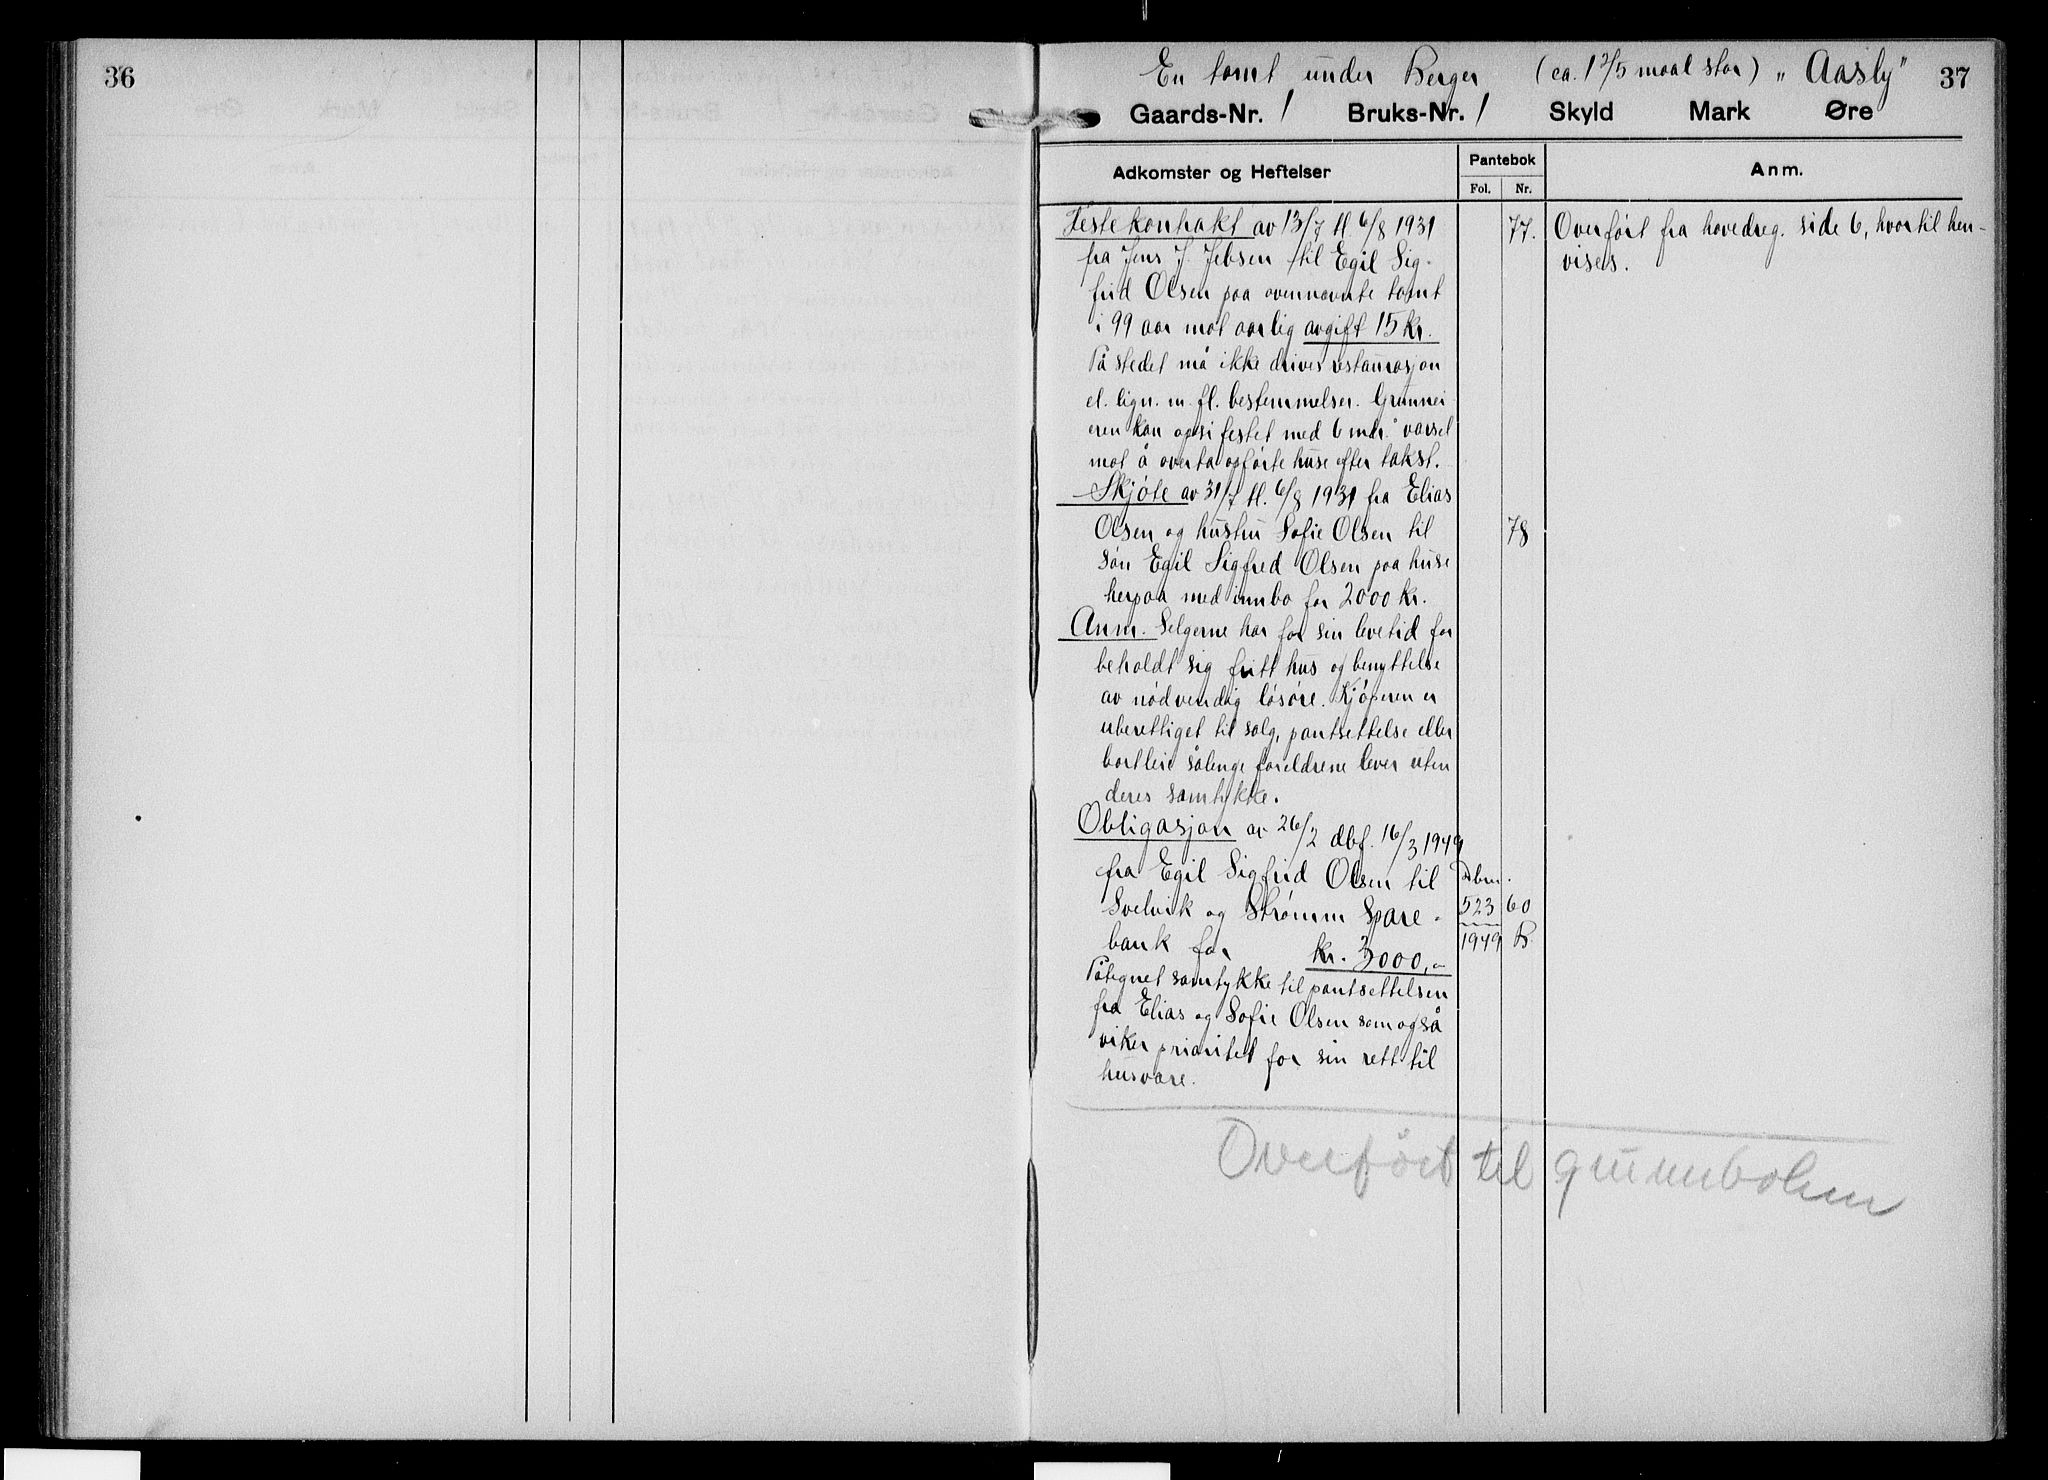 36
En tomt under Berger (ca. 1 2/5 maal stor) „Aasly" 37
Gaards-Nr. 1 Bruks-Nr. 1 Skyld Mark Øre
Adkomster og Heftelser Pantebok Anm.
Fol. Nr.
Festekontrakt av 13/7 tl. 6/8 1931 77. Overført fra hovedreg. side 6, hvortil hen-
fra Jens J. Jebsen til Egil Sig- vises.
frid Olsen paa ovennævnte tomt
i 99 aar mot aarlig avgift 15 kr.
På stedet må ikke drives restaurasjon
el. lign. m. fl. bestemmelser. Grunnei
eren kan opsi festet med 6 mdr. varsel
mot å overta opførte huse efter takst.
Skjøte av 31/7 tl. 6/8 1931 fra Elias
Olsen og hustru Sofie Olsen til 78
søn Egil Sigfred Olsen paa huse
herpaa med innbo for 2000 kr.
Anm. Selgerne har for sin levetid for
beholdt sig fritt hus og benyttelse
av nødvendig løsøre. Kjøperen er
uberettiget til salg, pantsettelse eller
bortleie sålenge foreldrene lever uten
deres samtykke.
Obligasjon av 26/2 dbf. 16/3 1949
fra Egil Sigfrid Olsen til Dbnr.
Svelvik og Strømm Spare- 523 60
bank for kr. 3000,- 1949 B.
Påtegnet samtykke til pantsettelsen
fra Elias og Sofie Olsen som også
viker prioritet for sin rett til
husvære.
Overført til grunnboken